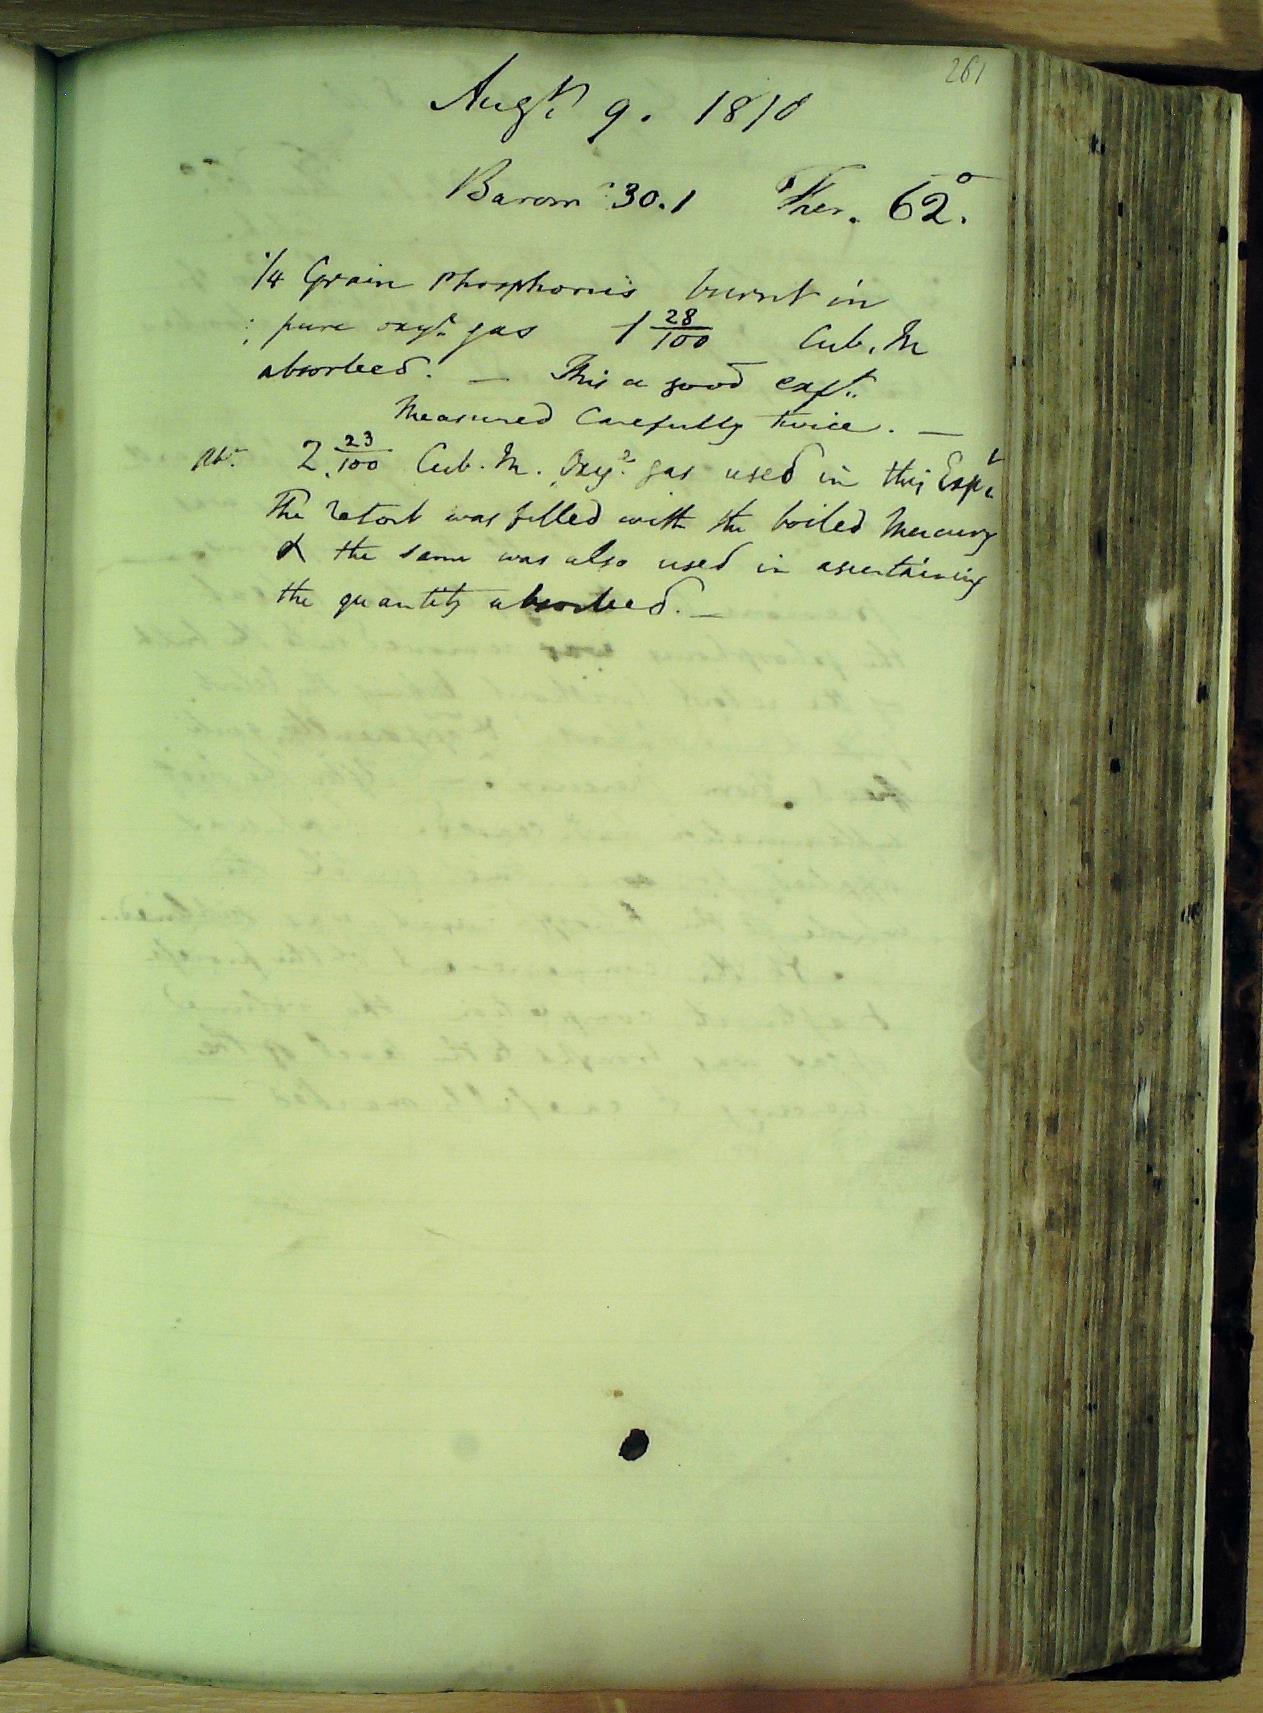 261
Augt. 9. 1810
Barom 30.1 Ther. 62°.
1/4 Grain Phosphorus burnt in
pure oxyn. gas 1 28/100 Cub. In
absorbed. — This a good expt.
Measured Carefully twice. —
2. 23/100 Cub. In. Oxyn. gas used in this Expt.
The retort was filled with the boiled Mercury
& the same was also used in ascertaining
the quantity absorbed. —